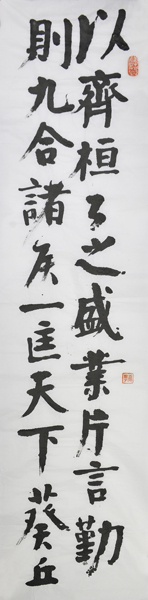 以齊桓公之盛業片言勤
則九合諸侯一匡天下葵丘